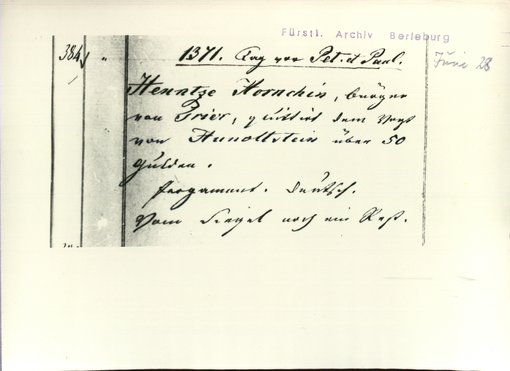 Fürstl. Archiv Berleburg
384 " 1371. Tag vor Pet. et Paul. Juni 28
Henntze Hornchin, bürger
von Trier, quittirt dem Vogt
von Hunoltstein über 50
Gulden.
Pergament. Deutsch.
Vom Siegel noch ein Rest.